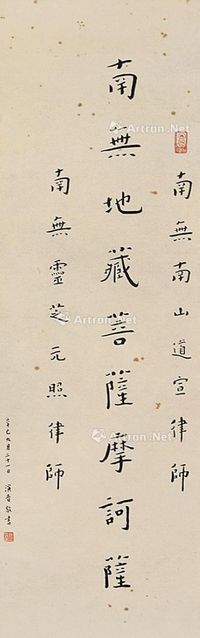 南無南山道宣律師
南無地藏菩薩摩訶薩
南無靈芝元照律師
辛巳九月二十一日 演音敬書
Artron.Net
Artron.Net
Artron.Net